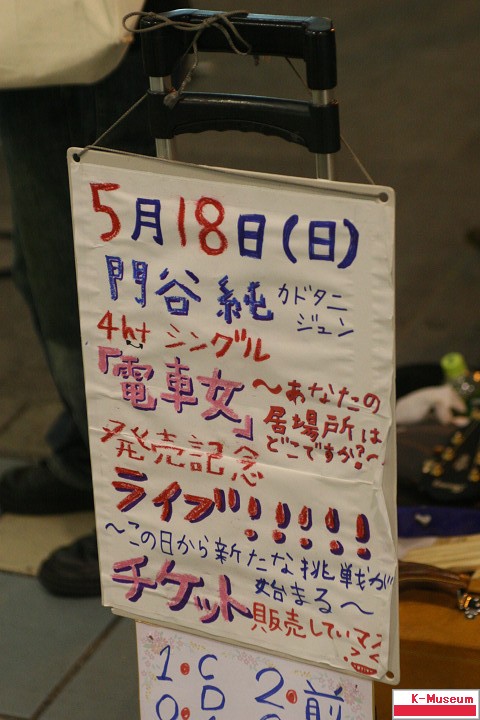 5月18日(日)
門谷 純 カドタニ ジュン
4ht シングル
「電車女」 ～あなたの居場所はどこですか?～
発売記念
ライブ!!!!!
～この日から新たな挑戦が始まる～
チケット販売していマン
1・C 2・前
CD
K-Museum